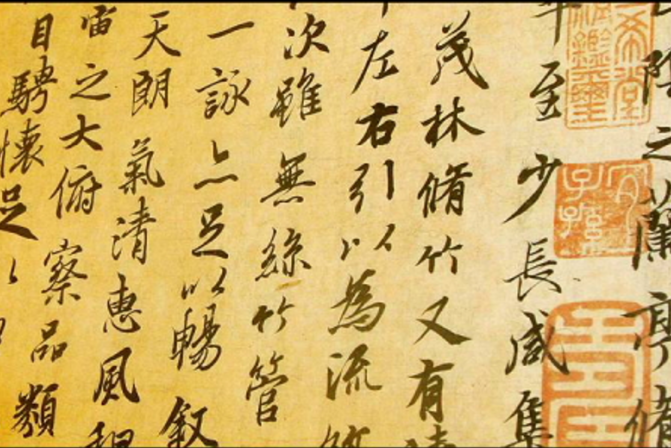 陰之蘭亭脩
畢至少長咸集
茂林脩竹又有清
左右引以為流觴
次雖無絲竹管
一詠亦足以暢叙
天朗氣清惠風和
宙之大俯察品類
目騁懷足以
希堂
精鑑璽
宜
子孫